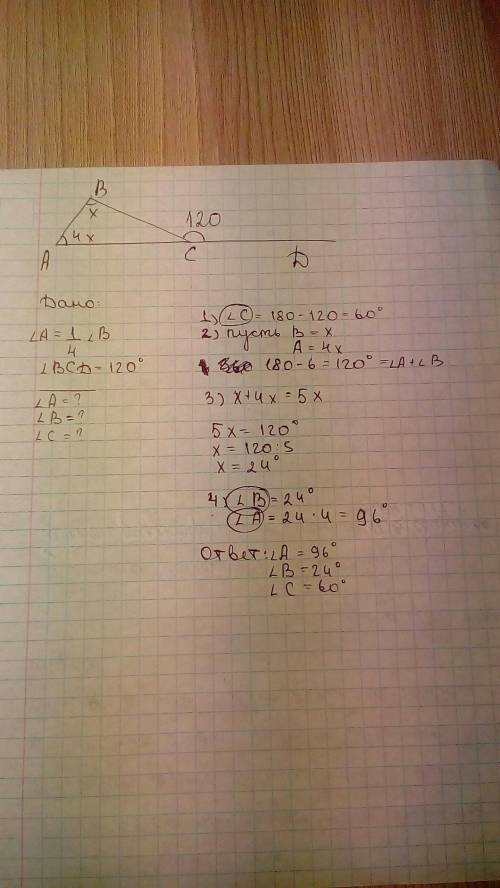 B
x
120
4x
A
C
D
Дано:
∠A = 1/4 ∠B
∠BCD = 120°
∠A = ?
∠B = ?
∠C = ?
1) ∠C = 180 - 120 = 60°
2) пусть B = x
A = 4x
180 - 6 = 120° = ∠A + ∠B
3) x + 4x = 5x
5x = 120°
x = 120 : 5
x = 24°
4) ∠B = 24°
∠A = 24 · 4 = 96°
Ответ: ∠A = 96°
∠B = 24°
∠C = 60°